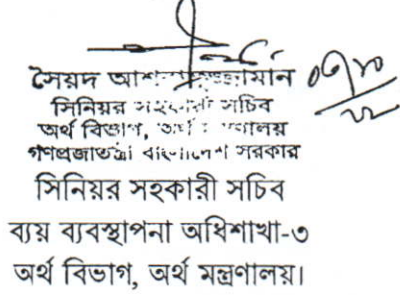 সৈয়দ
সিনিয়র সহকারী সচিব
অর্থ বিভাগ, অর্থ মন্ত্রণালয়
গণপ্রজাতন্ত্রী বাংলাদেশ সরকার
সিনিয়র সহকারী সচিব
ব্যয় ব্যবস্থাপনা অধিশাখা-৩
অর্থ বিভাগ, অর্থ মন্ত্রণালয়।